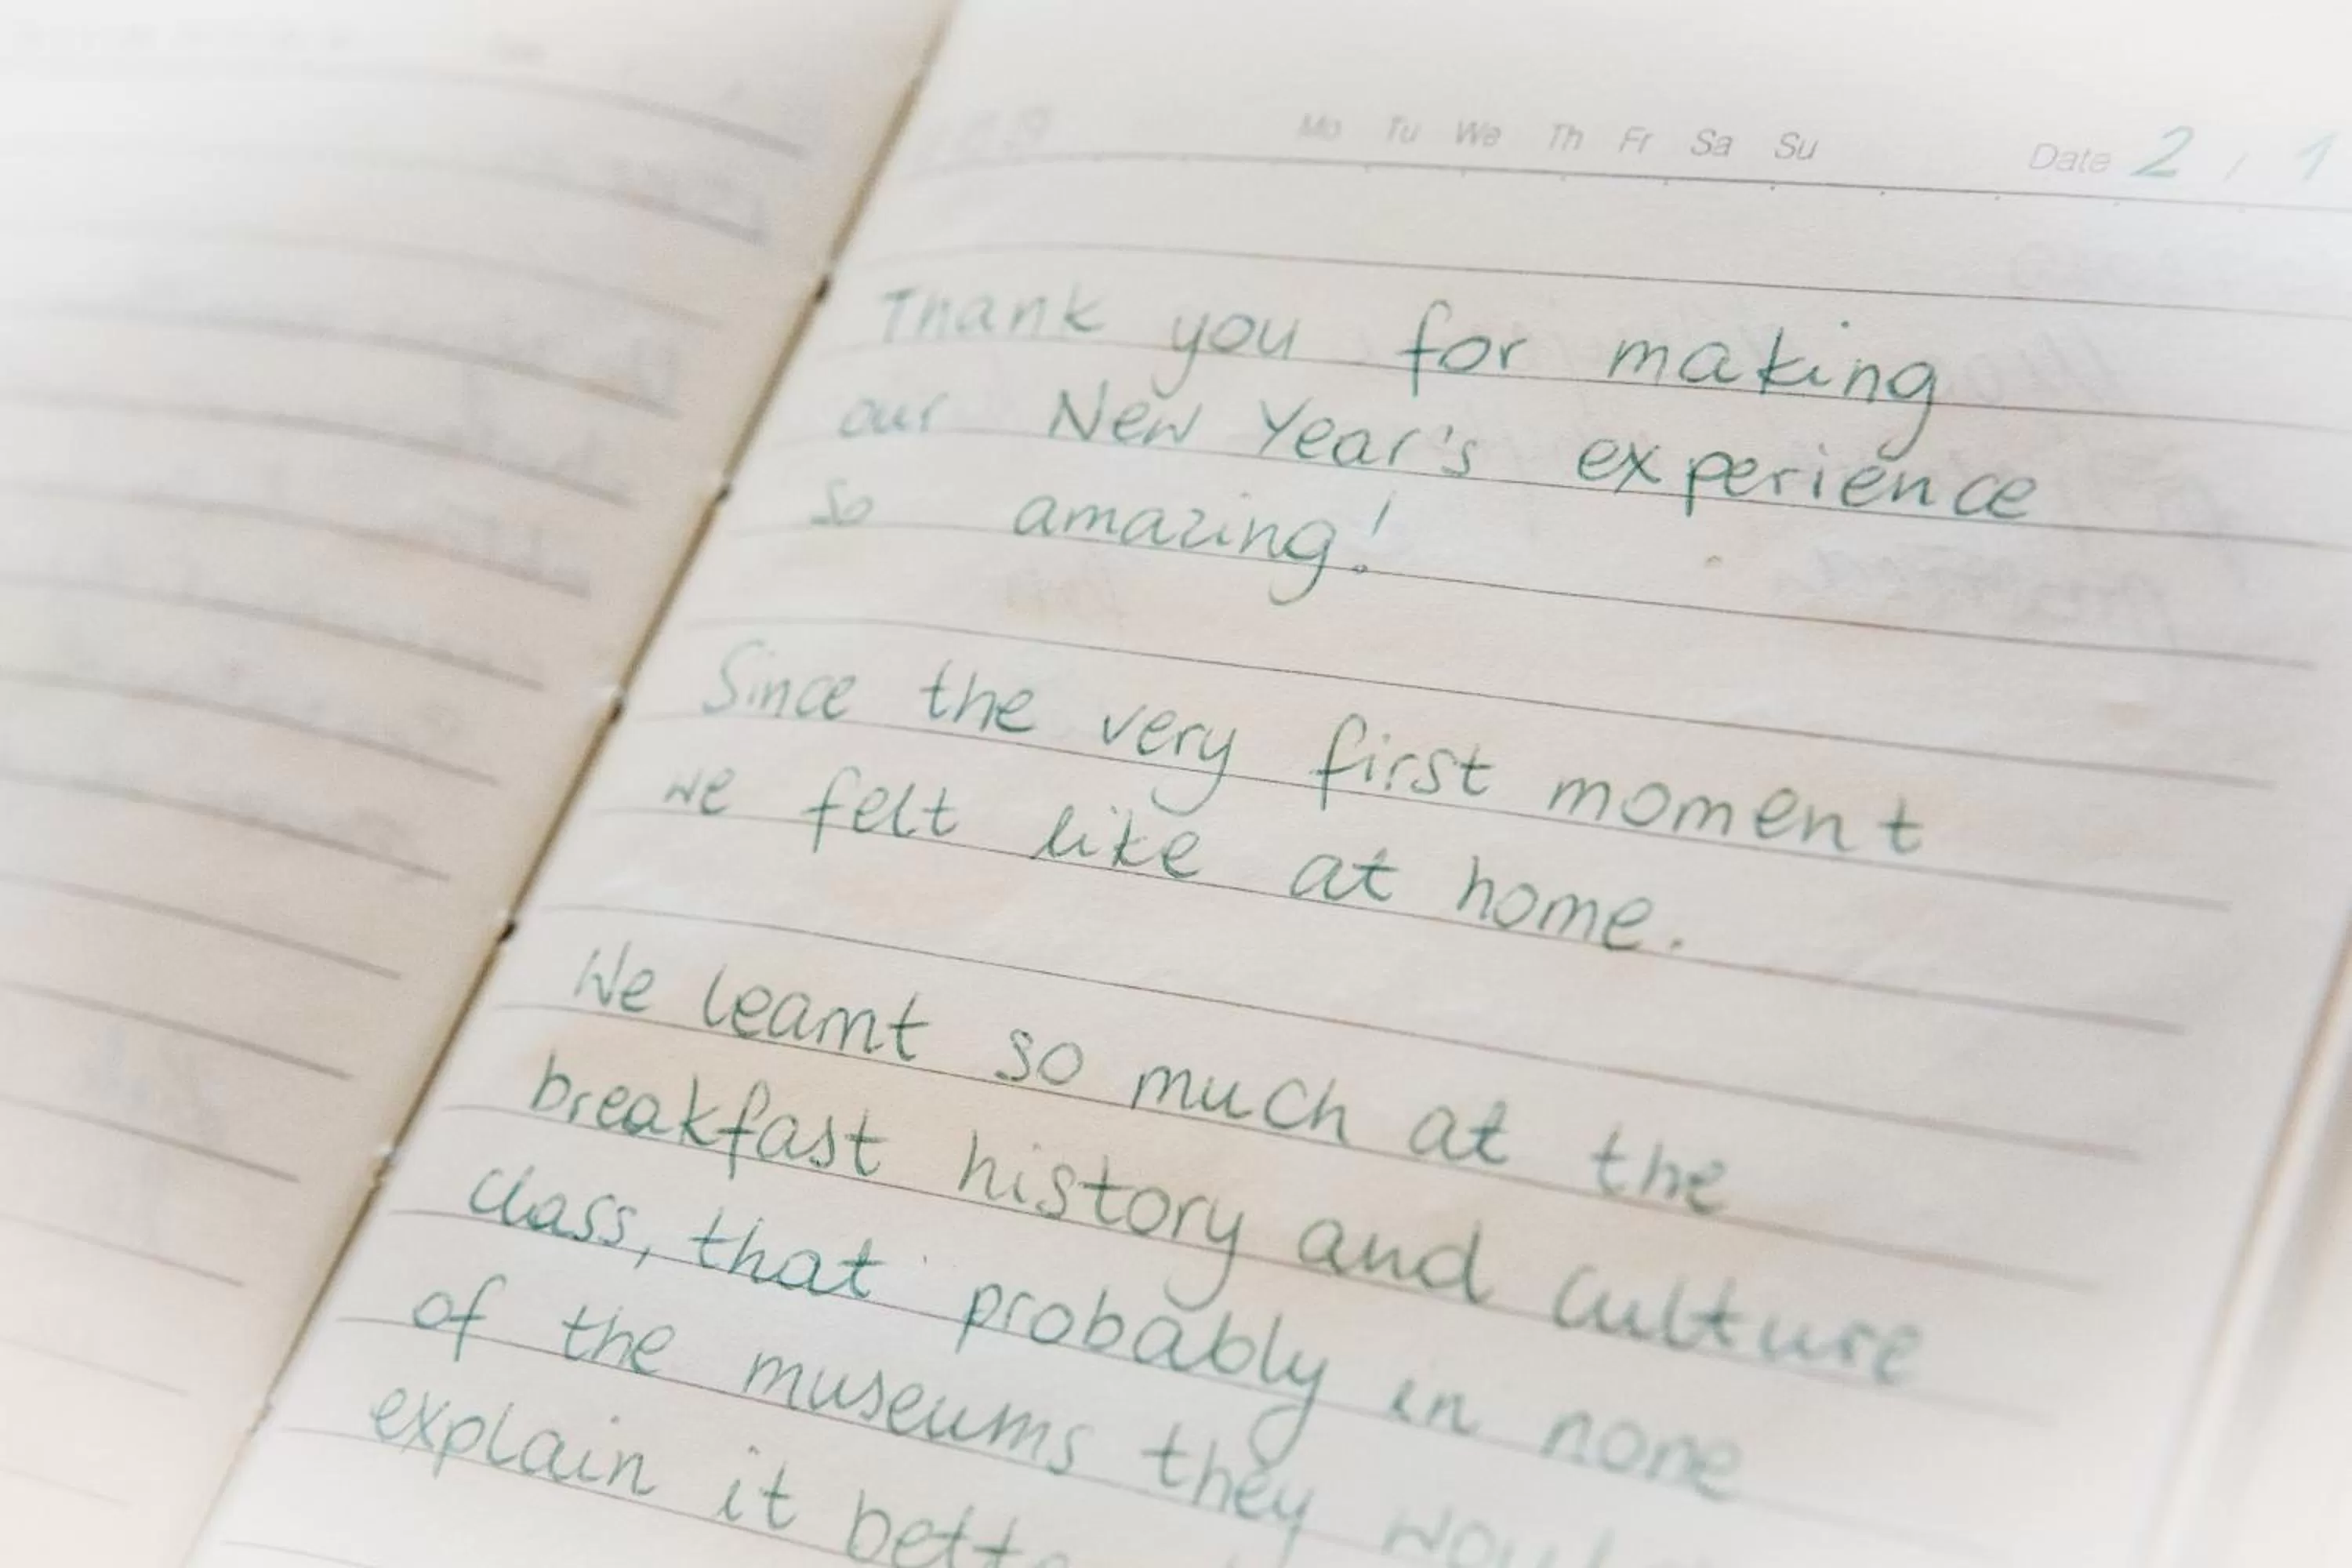 Mo Tu We Th Fr Sa Su Date 2 / 1
Thank you for making
our New Year's experience
so amazing!
Since the very first moment
we felt like at home.
We learnt so much at the
breakfast history and culture
class, that probably in none
of the museums they
explain it